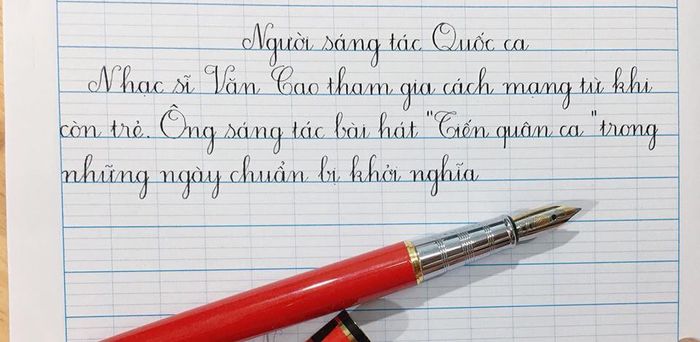 Người sáng tác Quốc ca
Nhạc sĩ Văn Cao tham gia cách mạng từ khi
còn trẻ. Ông sáng tác bài hát "Tiến quân ca" trong
những ngày chuẩn bị khởi nghĩa